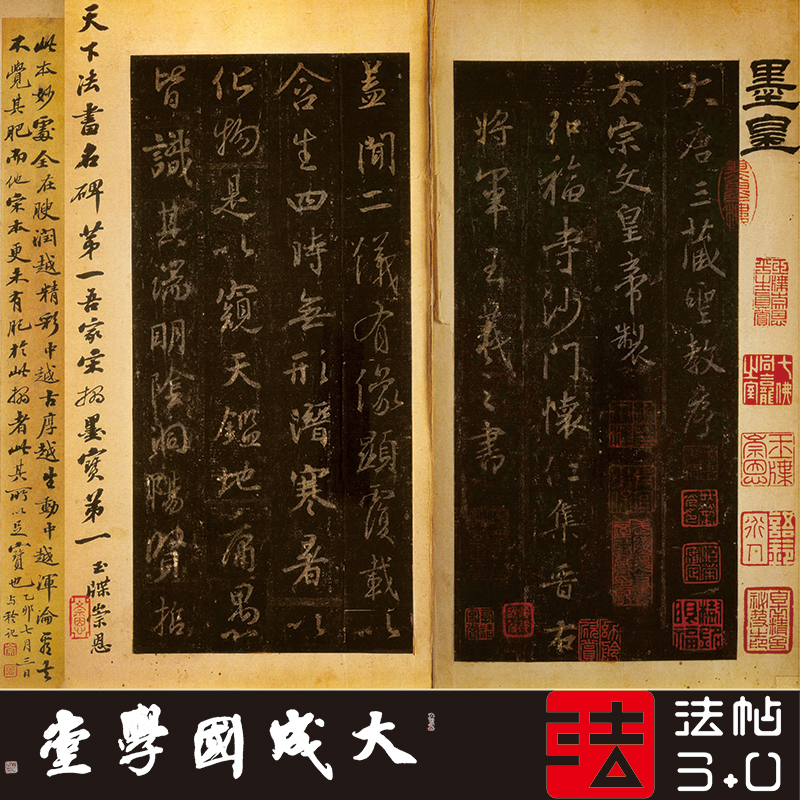 墨皇
大唐三藏聖教序
太宗文皇帝製
弘福寺沙門懷仁集晉右
將軍王羲之書
蓋聞二儀有像顯覆載以
含生四時無形潛寒暑以
化物是以窺天鑑地庸愚
皆識其端明陰洞陽賢哲
天下法書名碑第一吾家宋搨墨寶第一
玉牒崇恩
此本妙處全在腴潤越精彩中越古厚越生動中越渾淪君
不覺其肥而他宋本更未有肥於此搨者此其所以足寶也乙卯七月三日
大成國學堂
法
法帖
3.0